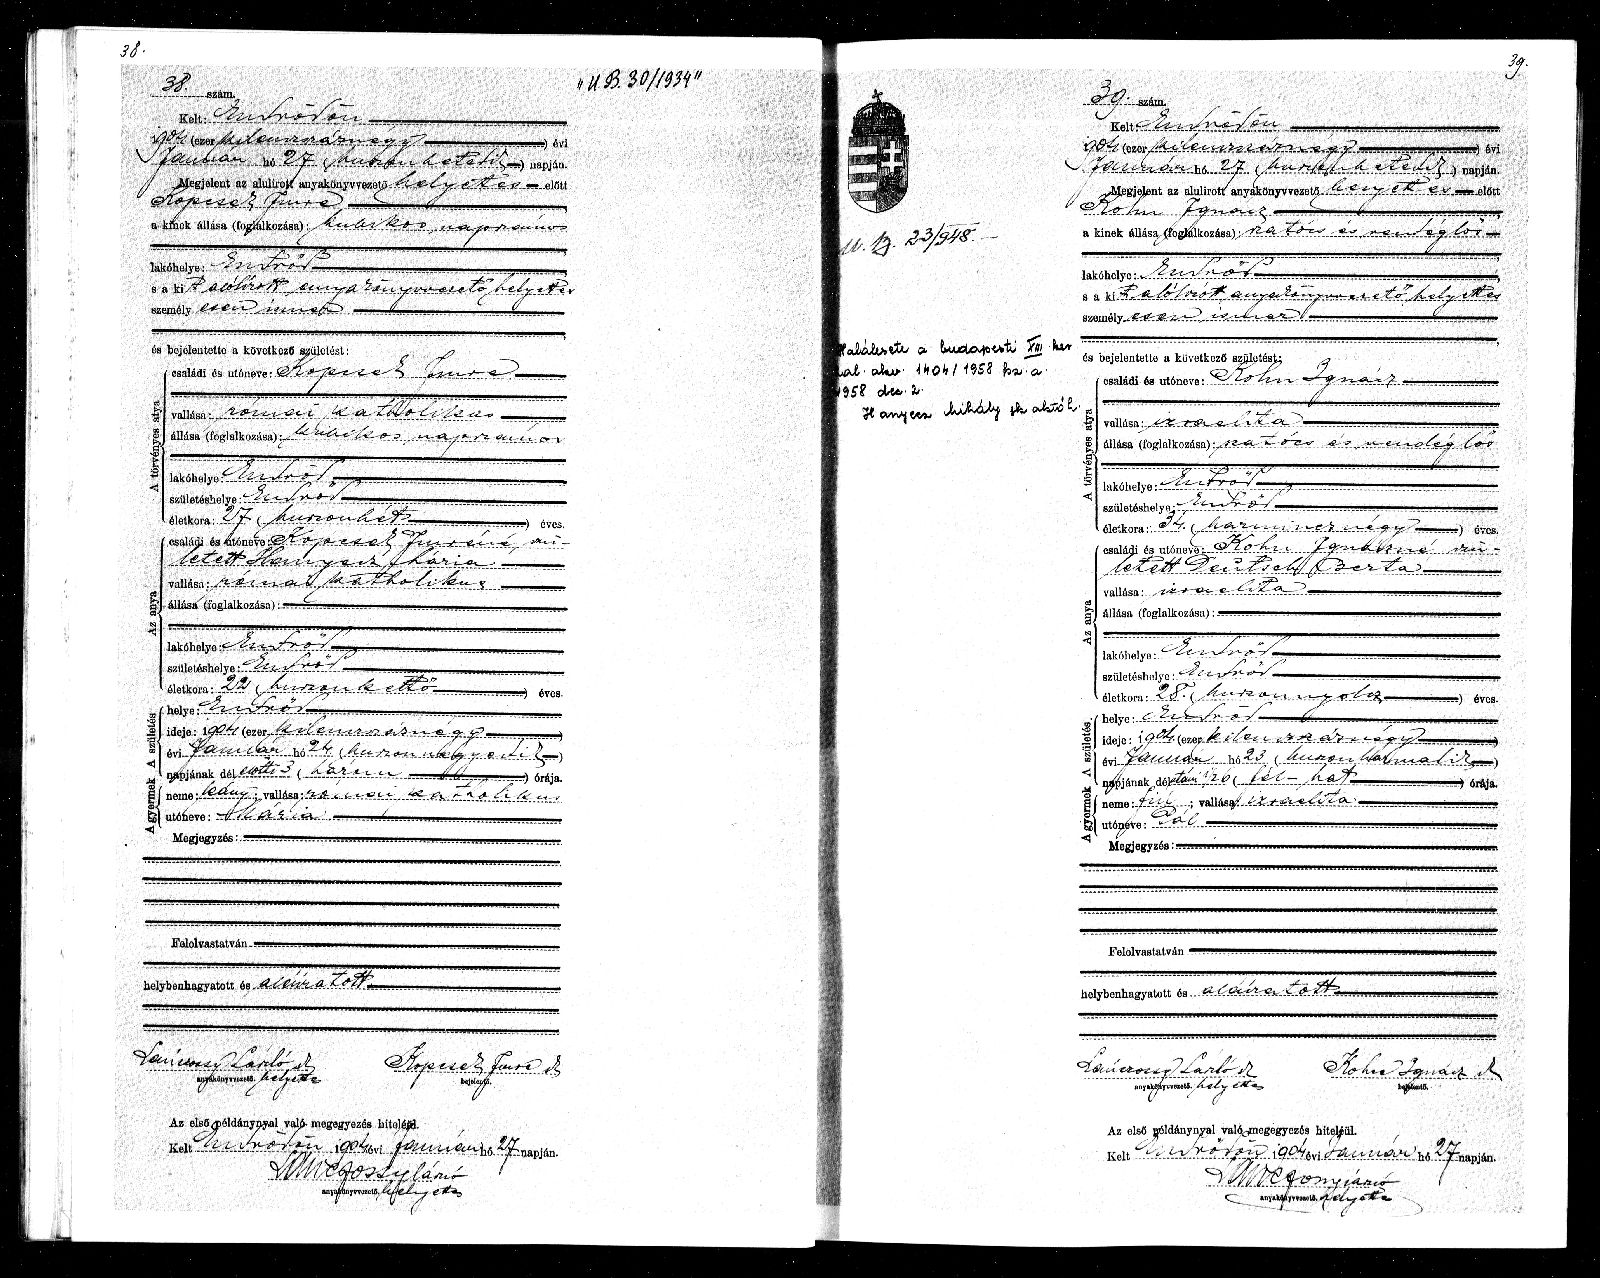 38.
„U. B. 30/1934"
38. szám.
Kelt: Endrődön
1904 (ezer kilenczszáznégy) évi
Január hó 27 (huszonhetedik) napján.
Megjelent az alulirott anyakönyvvezető helyettes előtt
Kopcsek Imre
a kinek állása (foglalkozása): kubikos napszámos
lakóhelye: Endrőd
s a kit alólirott anyakönyvvezető helyettes
személyesen ismer
és bejelentette a következő születést:
A törvényes atya
családi és utóneve: Kopcsek Imre
vallása: római katholikus
állása (foglalkozása): kubikos napszámos
lakóhelye: Endrőd
születéshelye: Endrőd
életkora: 27 (huszonhét) éves.
Az anya
családi és utóneve: Kopcsek Imréné, szü-
letett Hanyecz Mária
vallása: római katholikus
állása (foglalkozása):
lakóhelye: Endrőd
születéshelye: Endrőd
életkora: 22 (huszonkettő) éves.
A születés
helye: Endrőd
ideje: 1904 (ezer kilenczszáznégy)
évi Január hó 24 (huszonnegyedik)
napjának dél előtti 3 (három) órája.
A gyermek
neme: leány; vallása: római katholikus
utóneve: Mária
Megjegyzés:
Felolvastatván
helybenhagyatott és aláiratott
László sk
anyakönyvvezető. helyettes
Kopcsek Imre sk
bejelentő.
Az első példánynyal való megegyezés hiteléül.
Kelt Endrődön 1904 évi Január hó 27 napján.
László
anyakönyvvezető. helyettes
39.
U. B. 23/948.
Halálesete a budapesti XIII ker
hal. akv. 1404/1958 fsz. a.
1958 dec. 2.
Hanyecz Mihály
39. szám.
Kelt Endrődön
1904 (ezer kilenczszáznégy) évi
Január hó 27 (huszonhetedik) napján.
Megjelent az alulirott anyakönyvvezető helyettes előtt
Kohn Ignácz
a kinek állása (foglalkozása): szatócs és vendéglős
lakóhelye: Endrőd
s a kit alólirott anyakönyvvezető helyettes
személyesen ismer
és bejelentette a következő születést:
A törvényes atya
családi és utóneve: Kohn Ignácz
vallása: izraelita
állása (foglalkozása): szatócs és vendéglős
lakóhelye: Endrőd
születéshelye: Endrőd
életkora: 34 (harmincznégy) éves.
Az anya
családi és utóneve: Kohn Ignáczné szü-
letett Deutsch Berta
vallása: izraelita
állása (foglalkozása):
lakóhelye: Endrőd
születéshelye: Endrőd
életkora: 28 (huszonnyolcz) éves.
A születés
helye: Endrőd
ideje: 1904 (ezer kilenczszáznégy)
évi Január hó 23 (huszonharmadik)
napjának dél után 1/2 6 (fél-hat) órája.
A gyermek
neme: fiú; vallása: izraelita
utóneve: Pál
Megjegyzés:
Felolvastatván
helybenhagyatott és aláiratott
László sk
anyakönyvvezető. helyettes
Kohn Ignácz sk
bejelentő.
Az első példánynyal való megegyezés hiteléül.
Kelt Endrődön 1904 évi Január hó 27 napján.
László
anyakönyvvezető. helyettes